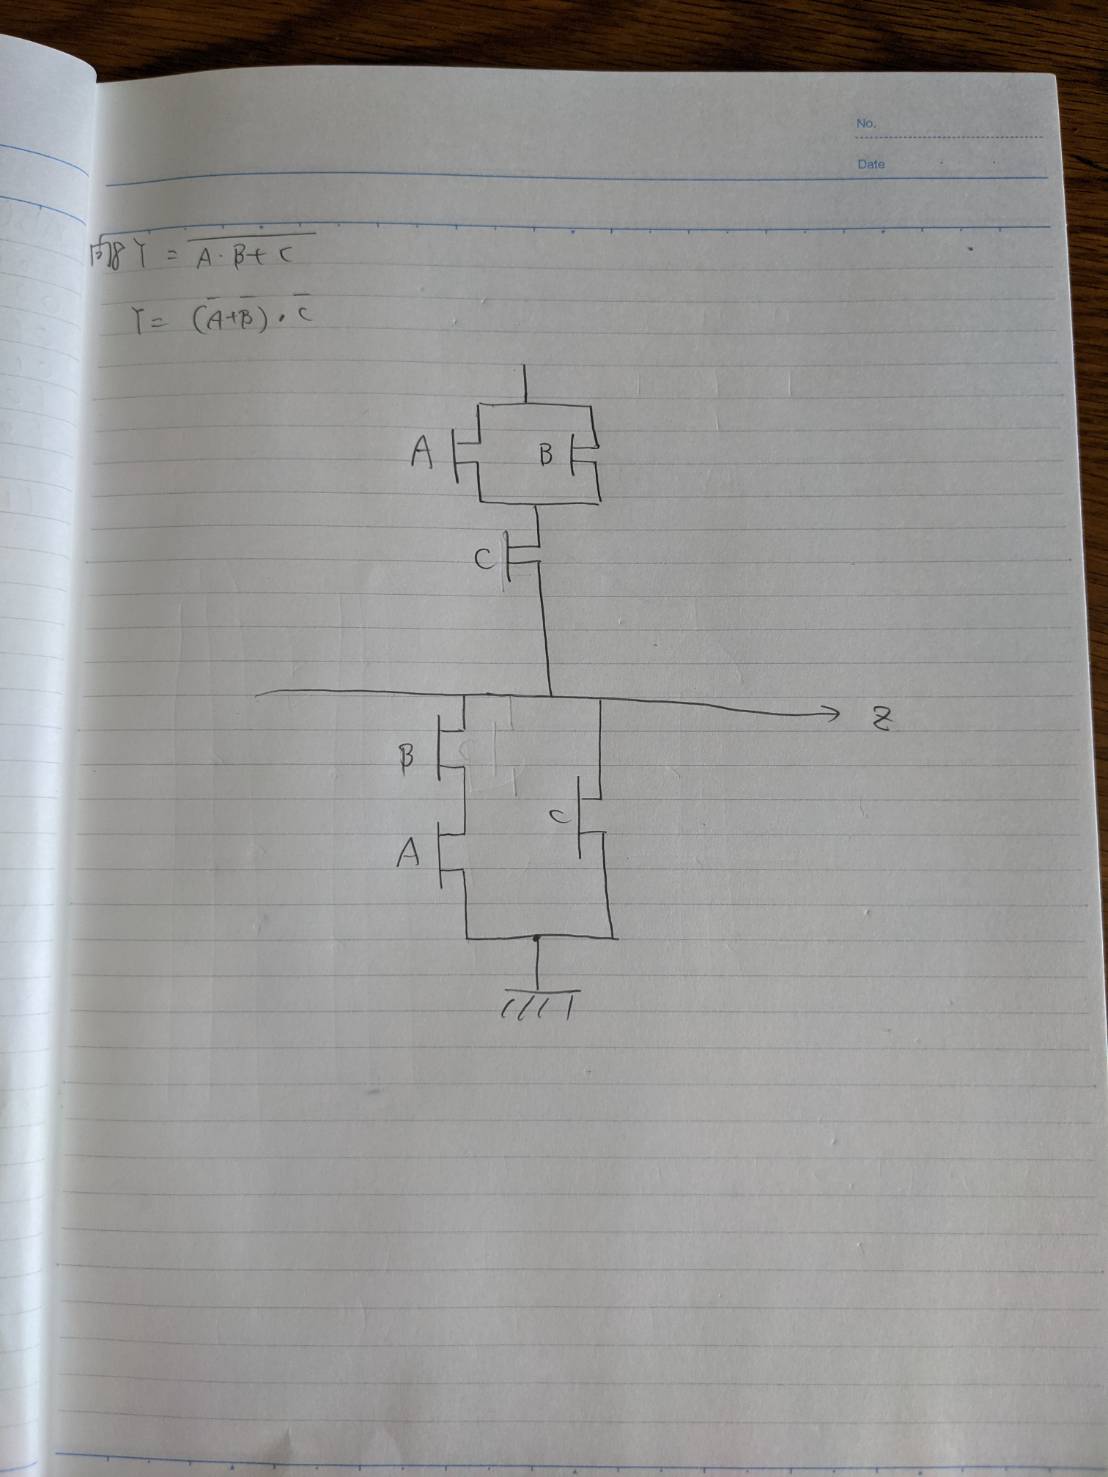 No.
Date
Y = \overline{A · B + C}
Y = (\overline{A} + \overline{B}) · \overline{C}
A
B
C
Z
B
C
A